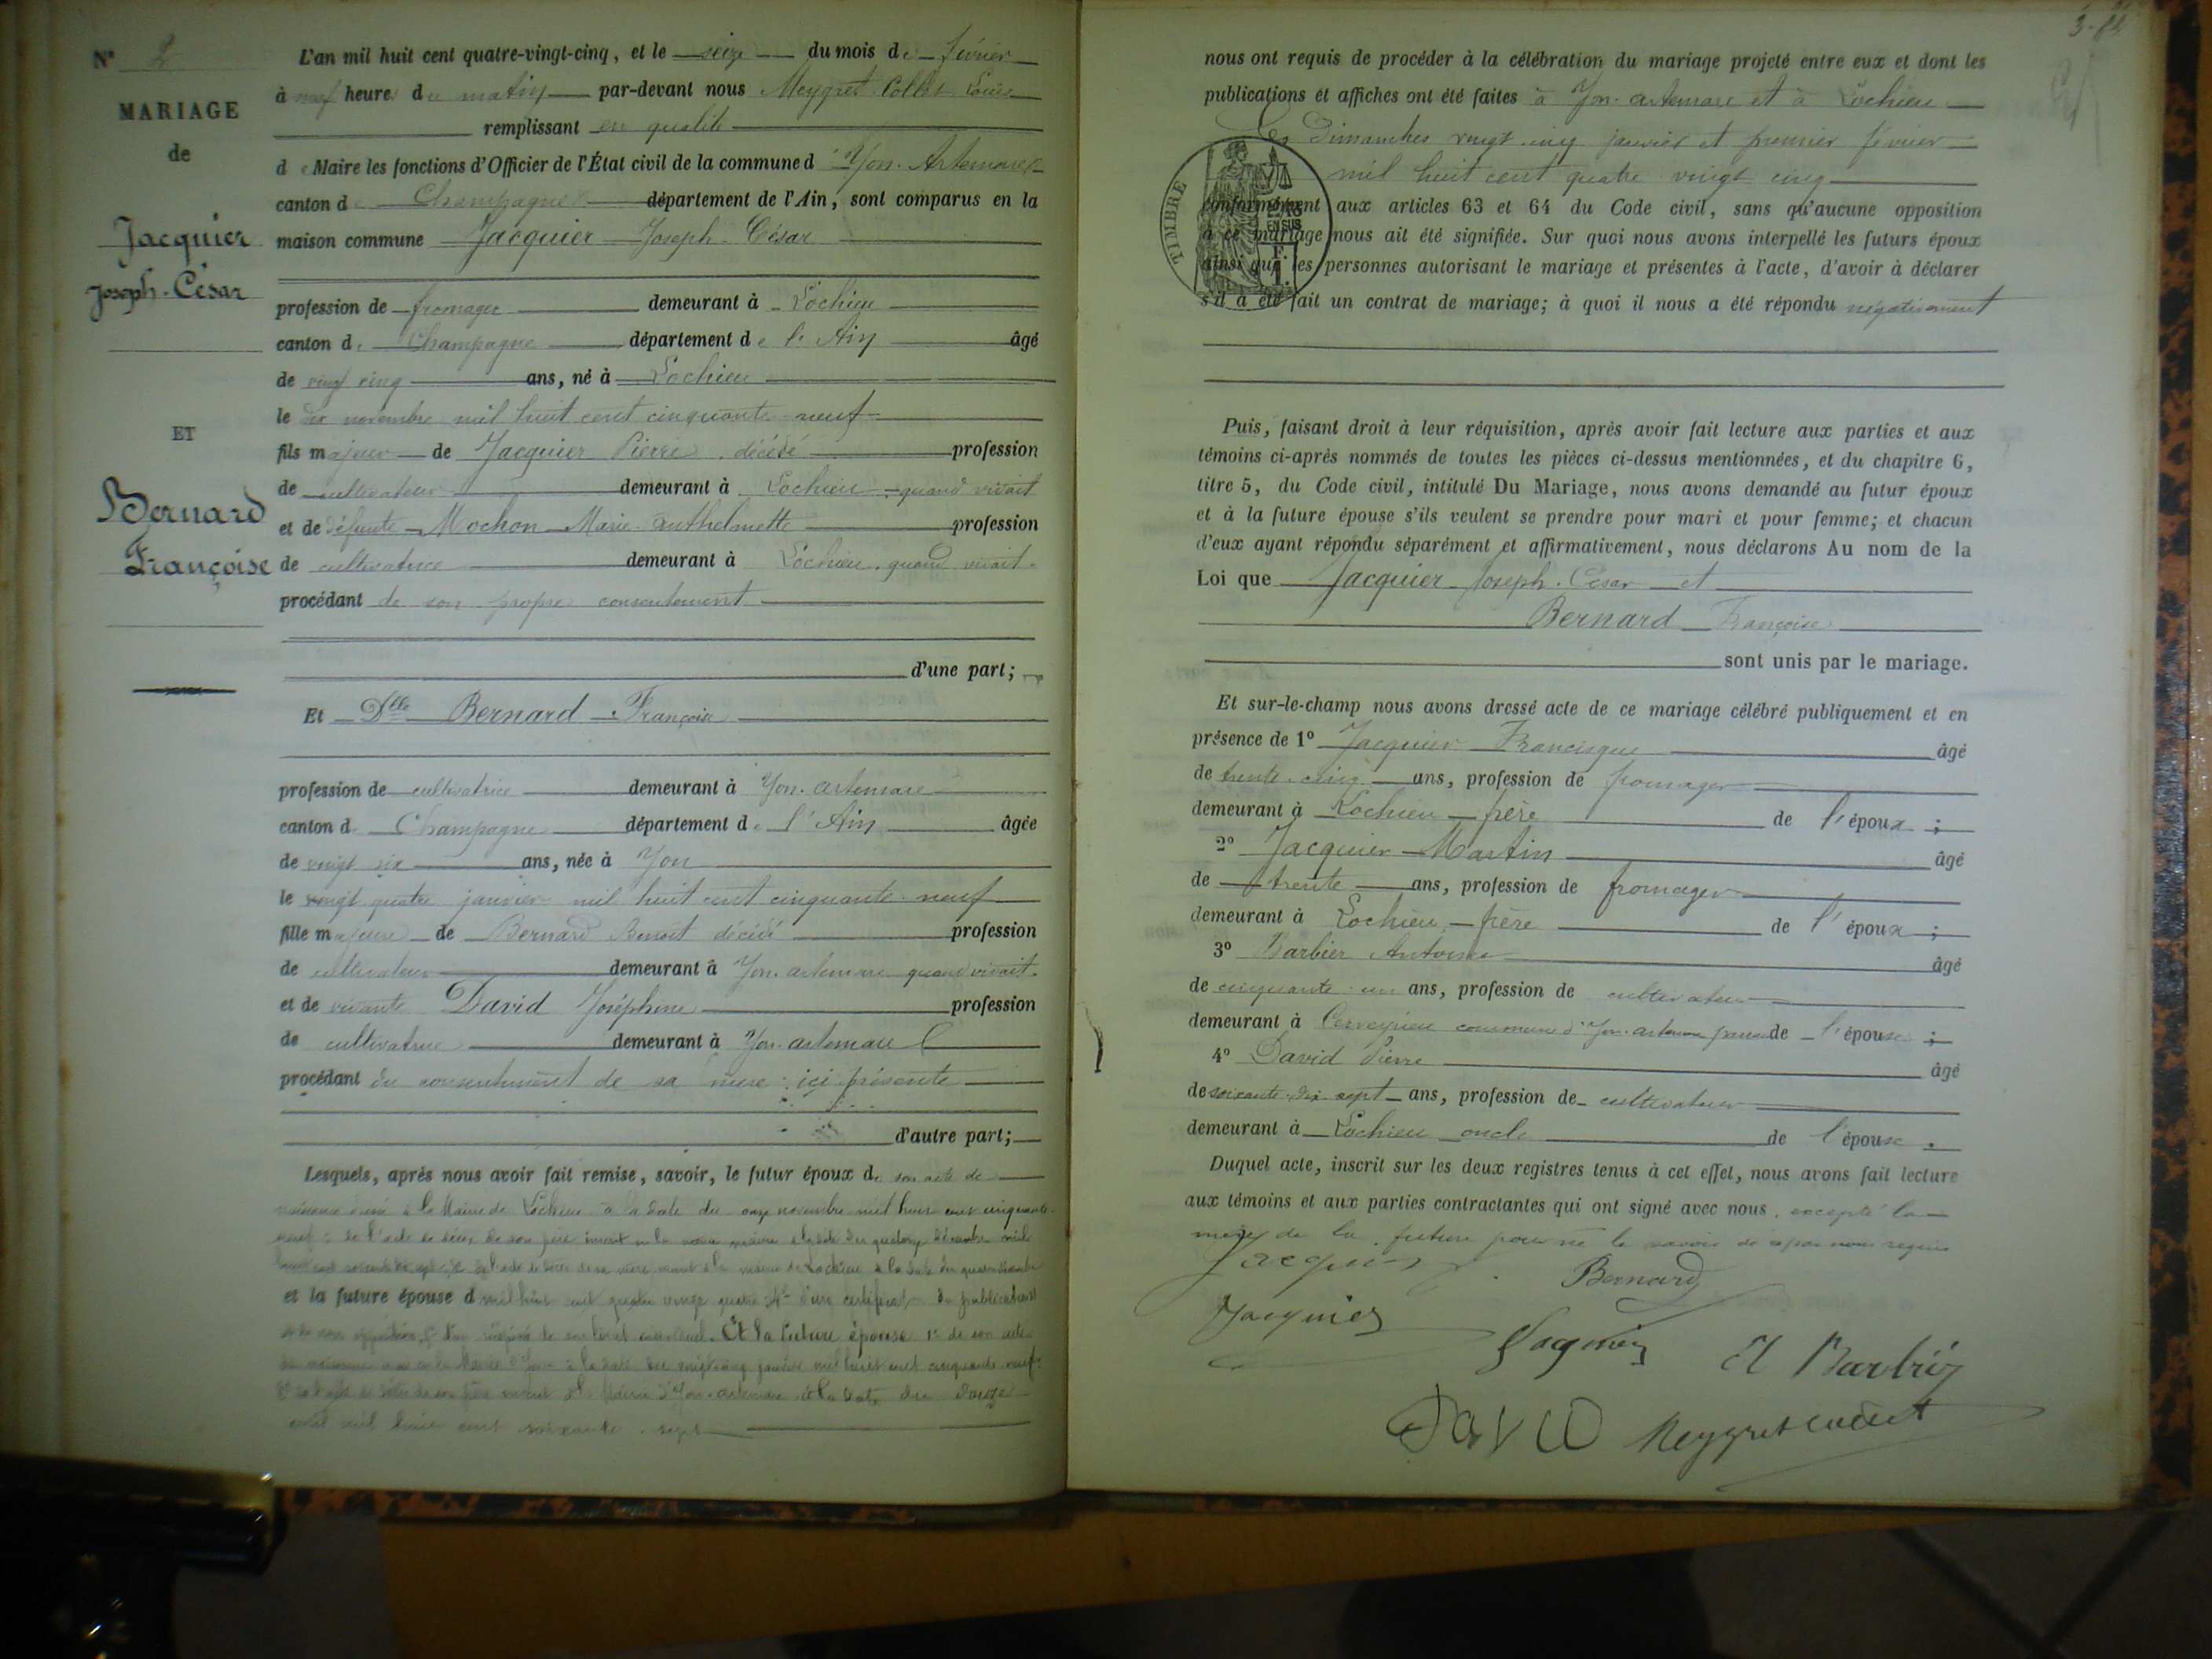 N° 2
MARIAGE
de
Jacquier
Joseph-César
ET
Bernard
Françoise
L'an mil huit cent quatre-vingt-cinq, et le seize du mois de février
à neuf heures du matin par-devant nous Meygret Collet Louis
remplissant en qualité
de Maire les fonctions d'Officier de l'État civil de la commune d'Yon-Artemare
canton de Champagne département de l'Ain, sont comparus en la
maison commune Jacquier Joseph-César
profession de fromager demeurant à Lochieu
canton de Champagne département de l'Ain âgé
de vingt cinq ans, né à Lochieu
le dix novembre mil huit cent cinquante-neuf
fils majeur de Jacquier Pierre décédé profession
de cultivateur demeurant à Lochieu quand vivait
et de défunte Mochon Marie-Anthelmette profession
de cultivatrice demeurant à Lochieu quand vivait
procédant de son propre consentement
d'une part;
Et Dlle Bernard Françoise
profession de cultivatrice demeurant à Yon-artemare
canton de Champagne département de l'Ain âgée
de vingt six ans, née à Yon
le vingt quatre janvier mil huit cent cinquante-neuf
fille majeure de Bernard Benoît décédé profession
de cultivateur demeurant à Yon-artemare quand vivait
et de vivante David Joséphine profession
de cultivatrice demeurant à Yon-artemare
procédant du consentement de sa mère ici présente
d'autre part;
Lesquels, après nous avoir fait remise, savoir, le futur époux de son acte de
naissance à la Mairie de Lochieu à la date du onze novembre mil huit cent cinquante
neuf de l'acte de décès de son père à la date du quatorze décembre mil
huit cent l'acte de décès de sa mère à la mairie de Lochieu à la date du
et la future épouse d mil huit cent quatre vingt quatre 4° d'un certificat de publication
et de non opposition Et la future épouse 1° de son acte
de naissance à la date du vingt-cinq janvier mil huit cent cinquante-neuf
de décès de son père Mairie d'Yon-artemare à la date du douze
avril mil huit cent soixante-sept
nous ont requis de procéder à la célébration du mariage projeté entre eux et dont les
publications et affiches ont été faites à Yon-artemare et à Lochieu
Les Dimanches vingt-cinq janvier et premier février
mil huit cent quatre vingt cinq
TIMBRE
EN SUS
conformément aux articles 63 et 64 du Code civil, sans qu'aucune opposition
à ce mariage nous ait été signifiée. Sur quoi nous avons interpellé les futurs époux
ainsi que les personnes autorisant le mariage et présentes à l'acte, d'avoir à déclarer
s'il a été fait un contrat de mariage; à quoi il nous a été répondu négativement
Puis, faisant droit à leur réquisition, après avoir fait lecture aux parties et aux
témoins ci-après nommés de toutes les pièces ci-dessus mentionnées, et du chapitre 6,
titre 5, du Code civil, intitulé Du Mariage, nous avons demandé au futur époux
et à la future épouse s'ils veulent se prendre pour mari et pour femme; et chacun
d'eux ayant répondu séparément et affirmativement, nous déclarons Au nom de la
Loi que Jacquier Joseph-César et
Bernard Françoise
sont unis par le mariage.
Et sur-le-champ nous avons dressé acte de ce mariage célébré publiquement et en
présence de 1° Jacquier Francisque âgé
de trente-cinq ans, profession de fromager
demeurant à Lochieu frère de l'époux ;
2° Jacquier Martin âgé
de trente ans, profession de fromager
demeurant à Lochieu frère de l'époux ;
3° Barbier Antoine âgé
de cinquante-un ans, profession de cultivateur
demeurant à Cerveyrieu commune d'Yon-artemare de l'épouse ;
4° David Pierre âgé
de soixante-dix-sept ans, profession de cultivateur
demeurant à Lochieu oncle de l'épouse.
Duquel acte, inscrit sur les deux registres tenus à cet effet, nous avons fait lecture
aux témoins et aux parties contractantes qui ont signé avec nous, excepté la
mère de la future pour ne le savoir de ce par nous requise
Jacquier
Bernard
Jacquier
Jacquier
Barbier
David
Meygret Collet